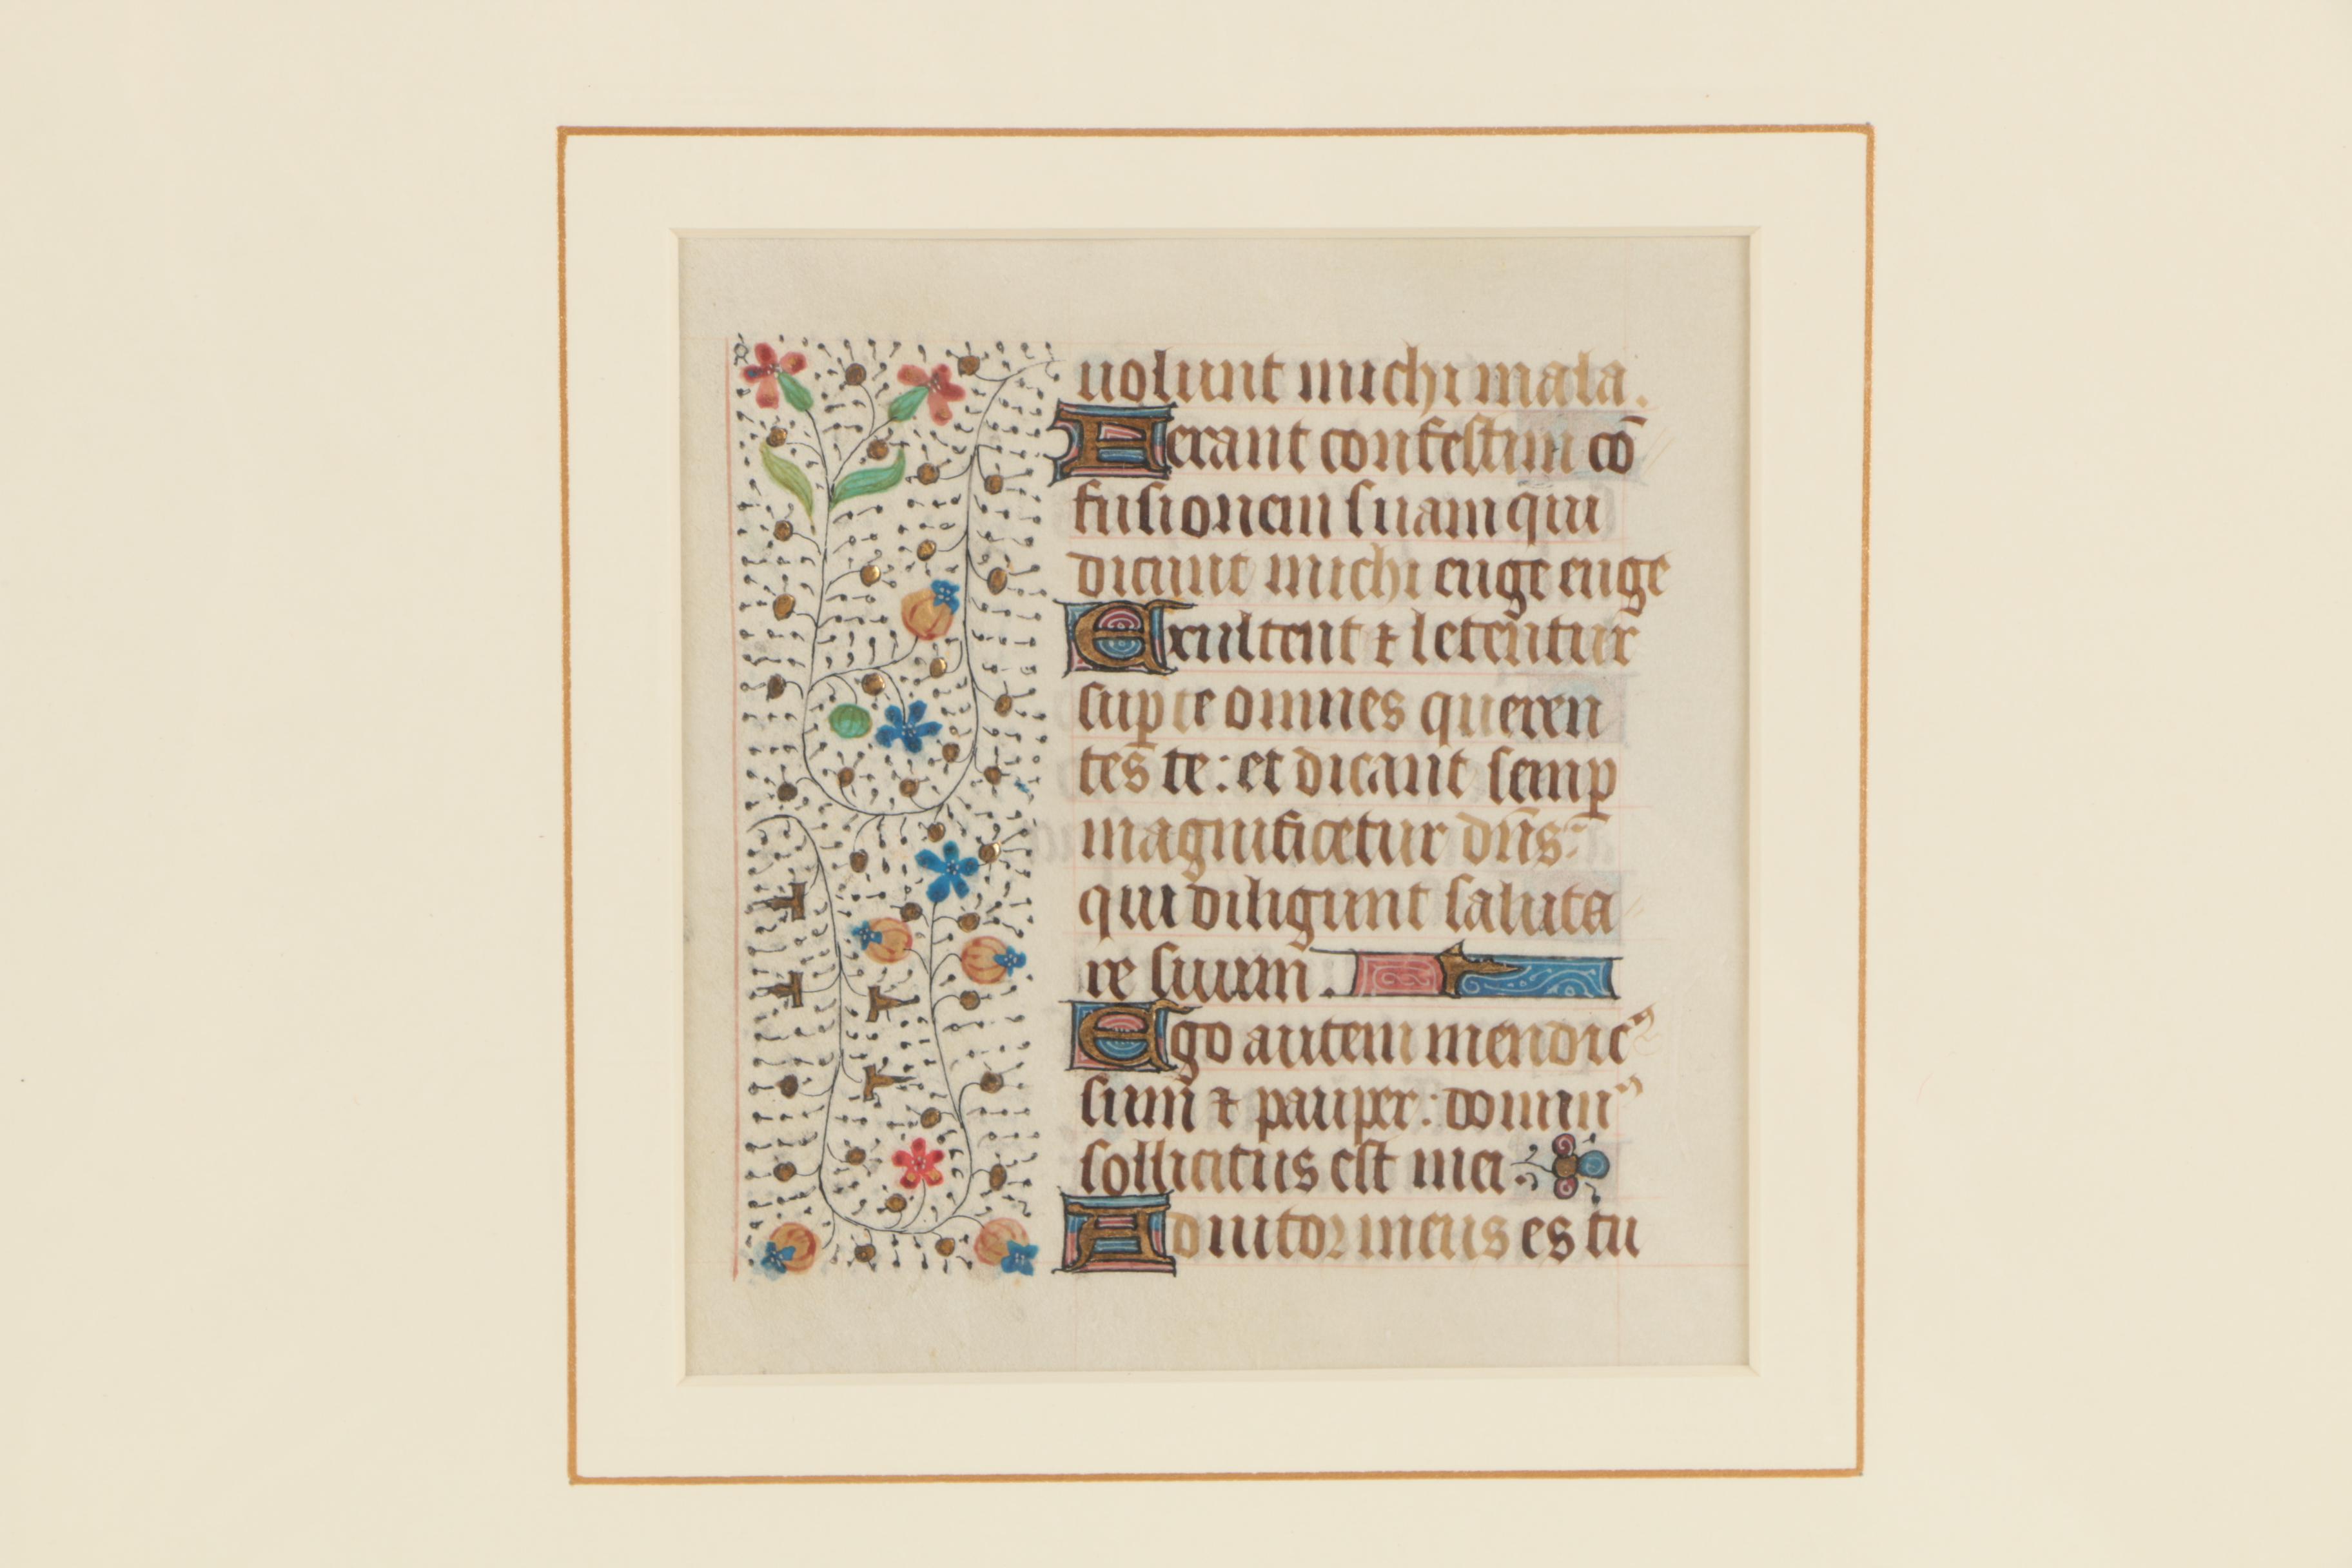 uolunt michi mala.
Ferant confestim cō
fusionem suam qui
dicunt michi euge euge
Exultent ⁊ letentur
suꝑ te omnes queren
tes te: et dicant semꝑ
magnificetur dn̄s
qui diligunt saluta
re suum.
Ego autem mendicꝰ
sum ⁊ pauper: dominꝰ
sollicitus est mei.
Adiutor meus es tu